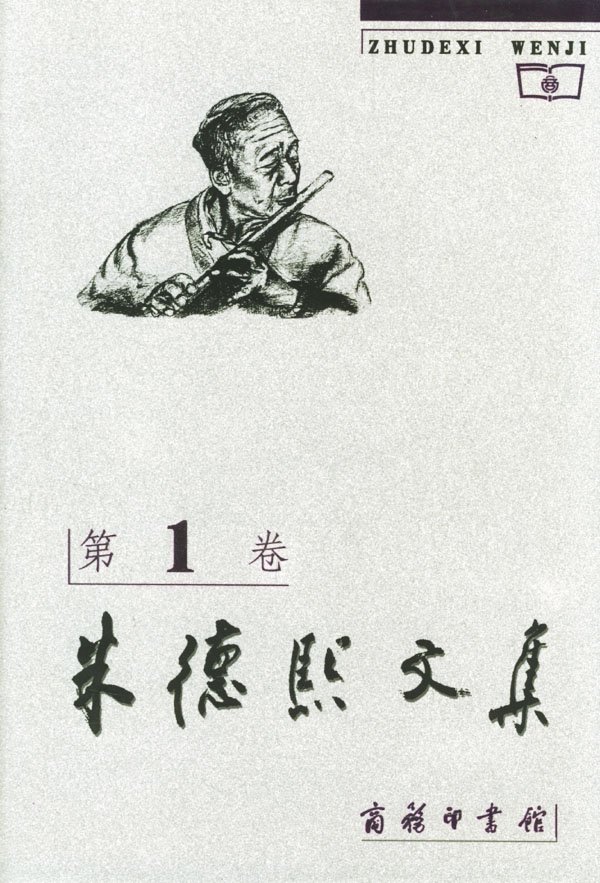 ZHUDEXI WENJI
第 1 卷
朱德熙文集
商務印書館